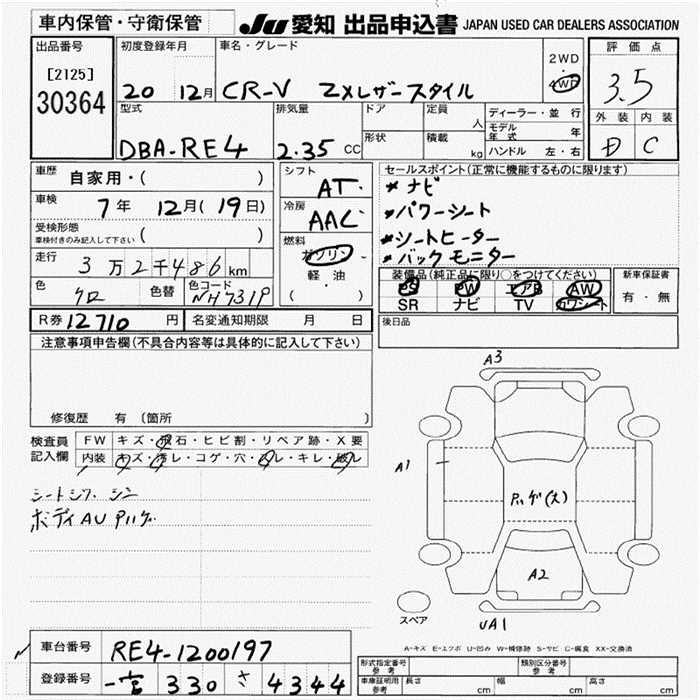 車内保管・守衛保管
JU 愛知 出品申込書 JAPAN USED CAR DEALERS ASSOCIATION
出品番号
[2125]
30364
初度登録年月
20 12月
車名・グレード
CR-V ZXレザースタイル
2WD
4WD
評価点
3.5
外装 内装
D C
型式
DBA-RE4
排気量
2.35 CC
ドア
形状
定員 人
積載 kg
ディーラー・並行
モデル年式 年
ハンドル 左・右
車歴
自家用・( )
車検
7年 12月(19日)
受検形態
車検付きのみ記入して下さい ( )
走行
3万2千486km
色
クロ
色替
色コード
NH731P
シフト
AT
冷房
AAC
燃料
ガソリン
軽油
( )
セールスポイント(正常に機能するものに限ります)
*ナビ
*パワーシート
*シートヒーター
*バックモニター
装備品(純正品に限り○をつけてください)
PS PW エアB AW
SR ナビ TV カワシート
新車保証書
有・無
R券 12710円
名変通知期限 月 日
後日品
注意事項申告欄(不具合内容等は具体的に記入して下さい)
修復歴 有 (箇所 )
検査員記入欄
FW キズ・飛石・ヒビ割・リペア跡・X要
内装 キズ・汚レ・コゲ・穴・スレ・キレ・破レ
シートシワ シミ
ボディAUPハゲ
A3
A1
Pハゲ(大)
A2
UA1
スペア
A-キズ E-エクボ U-凹み W-補修跡 S-サビ C-腐食 XX-交換済
車台番号
RE4-1200197
登録番号
一宮 330 さ 4344
形式指定番号 参考
類別区分番号 参考
車庫証明用 参考
長さ cm
幅 cm
高さ cm